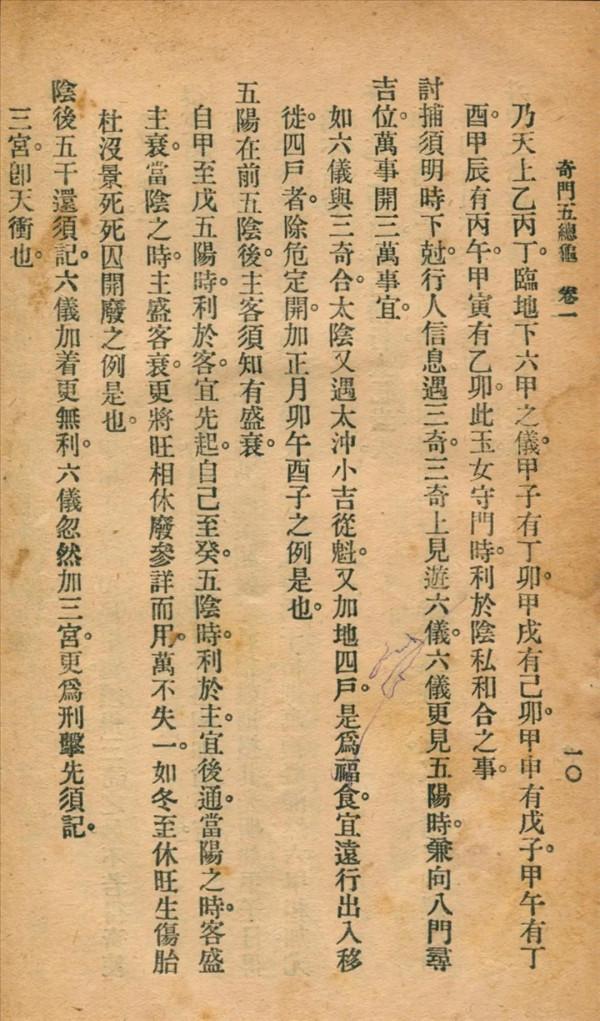 奇門五總龜　卷一　一〇
乃天上乙丙丁。臨地下六甲之儀。甲子有丁卯。甲戌有己卯。甲申有戊子。甲午有丁
酉。甲辰有丙午。甲寅有乙卯。此玉女守門時。利於陰私和合之事。
討捕須明時下尅。行人信息遇三奇。三奇上見遊六儀。六儀更見五陽時。兼向八門尋
吉位。萬事開三萬事宜。
如六儀與三奇合。太陰又遇太沖小吉從魁。又加地四戶。是爲福食。宜遠行出入移
徙。四戶者。除危定開。加正月卯午酉子之例是也。
五陽在前五陰後。主客須知有盛衰。
自甲至戊五陽時。利於客。宜先起。自己至癸。五陰時。利於主。宜後通。當陽之時。客盛
主衰。當陰之時。主盛客衰。更將旺相休廢參詳而用。萬不失一。如冬至休旺生傷胎
杜沒景死死囚開廢之例是也。
陰後五干還須記。六儀加着更無利。六儀忽然加三宮。更爲刑擊先須記。
三宮。卽天衝也。